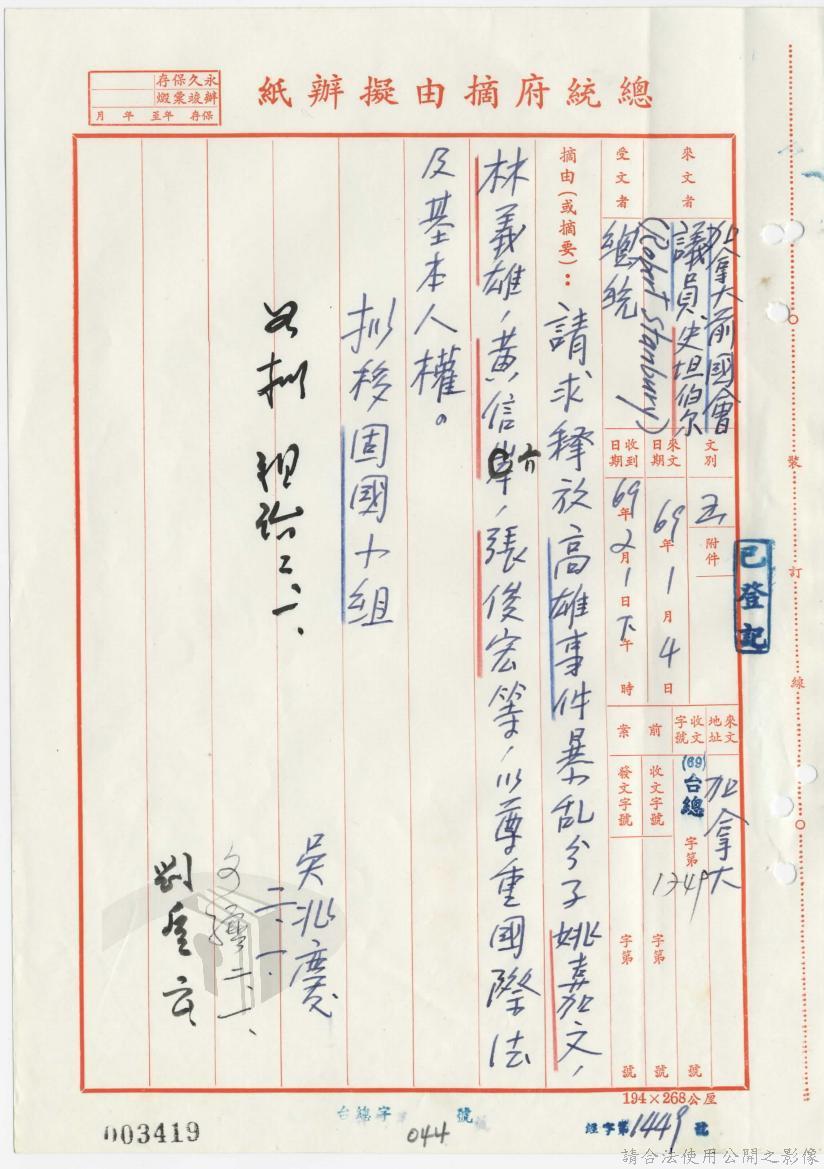 總統府摘由擬辦紙
永久保存
辦竣稟繳
保存 年至 年 月
來文者
加拿大前國會
議員史坦伯尔
(Robert Stanbury)
受文者
總統
文別
函
附件
來文日期
69年1月4日
收到日期
69年2月1日下午 時
來文地址
加拿大
收文字號
(69)台總字第1449號
前案
收文字號
字第 號
發文字號
字第 號
摘由(或摘要):
請求釋放高雄事件暴乱分子姚嘉文,
林義雄,黃信介,張俊宏等,以尊重國際法
及基本人權。
拟移固國小組
吳兆慶
二.一.
如拟
二.一、
二.一、
已登記
裝訂線
194×268公厘
003419
台總字 號
044
經字第1449號
請合法使用公開之影像